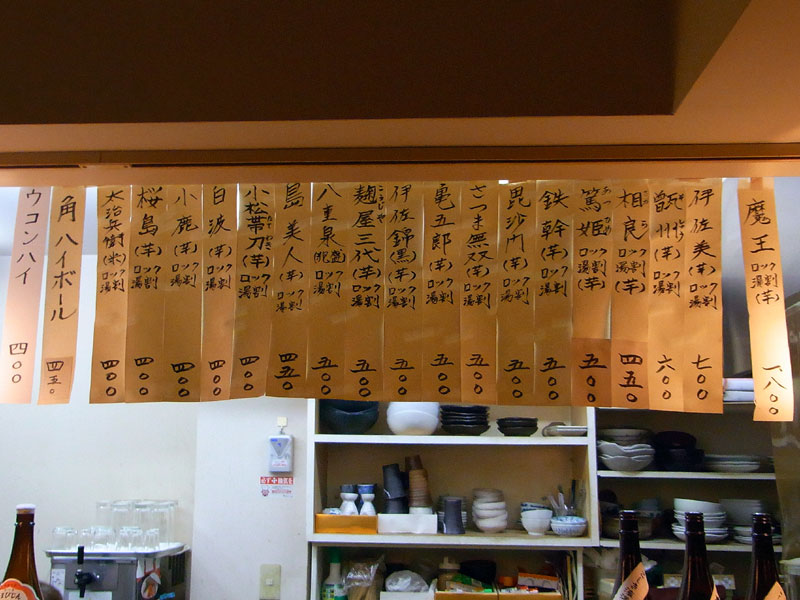 魔王
ロック
湯割
(芋)
一、八〇〇
伊佐美(芋)
ロック
湯割
七〇〇
甑州(芋)
ロック
湯割
六〇〇
相良
ロック
湯割
(芋)
四五〇
篤姫
あつひめ
ロック
湯割
(芋)
五〇〇
鉄幹(芋)
ロック
湯割
五〇〇
毘沙門(芋)
ロック
湯割
五〇〇
さつま無双(芋)
ロック
湯割
五〇〇
亀五郎(芋)
ロック
湯割
五〇〇
伊佐錦(黒)(芋)
ロック
湯割
五〇〇
麹屋三代(芋)
こうじや
ロック
湯割
五〇〇
八重泉(泡盛)
ロック
湯割
五〇〇
島美人(芋)
ロック
湯割
四五〇
小松帯刀(芋)
たてわき
ロック
湯割
四〇〇
白波(芋)
ロック
湯割
四〇〇
小鹿(芋)
ロック
湯割
四〇〇
桜島(芋)
ロック
湯割
四〇〇
太治兵衛(米)
ロック
湯割
四〇〇
角ハイボール
四五〇
ウコンハイ
四〇〇